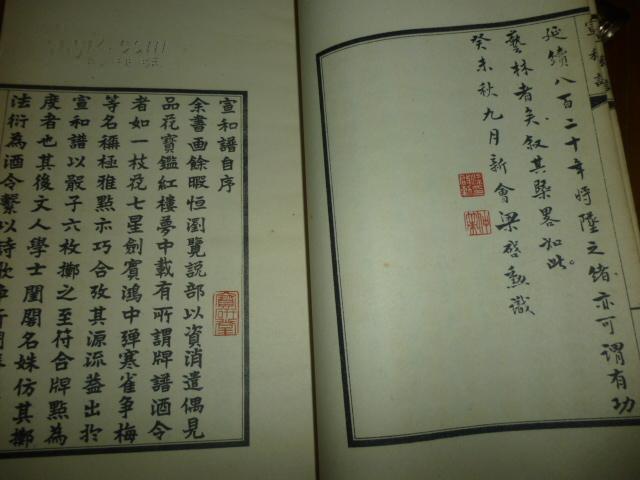 宣和譜
延續八百二十年將墜之緒亦可謂有功
藝林者矣叙其槩畧如此。
癸未秋九月新會梁啓勳識
宣和譜自序
余書畫餘暇恒瀏覽説部以資消遣偶見
品花寶鑑紅樓夢中載有所謂牌譜酒令
者如一枝花七星劍賓鴻中彈寒雀爭梅
等名稱極雅點亦巧合攷其源流葢出於
宣和譜以骰子六枚擲之至符合牌點為
度者也其後文人學士閨閣名姝仿其擲
法衍為酒令繫以詩歌